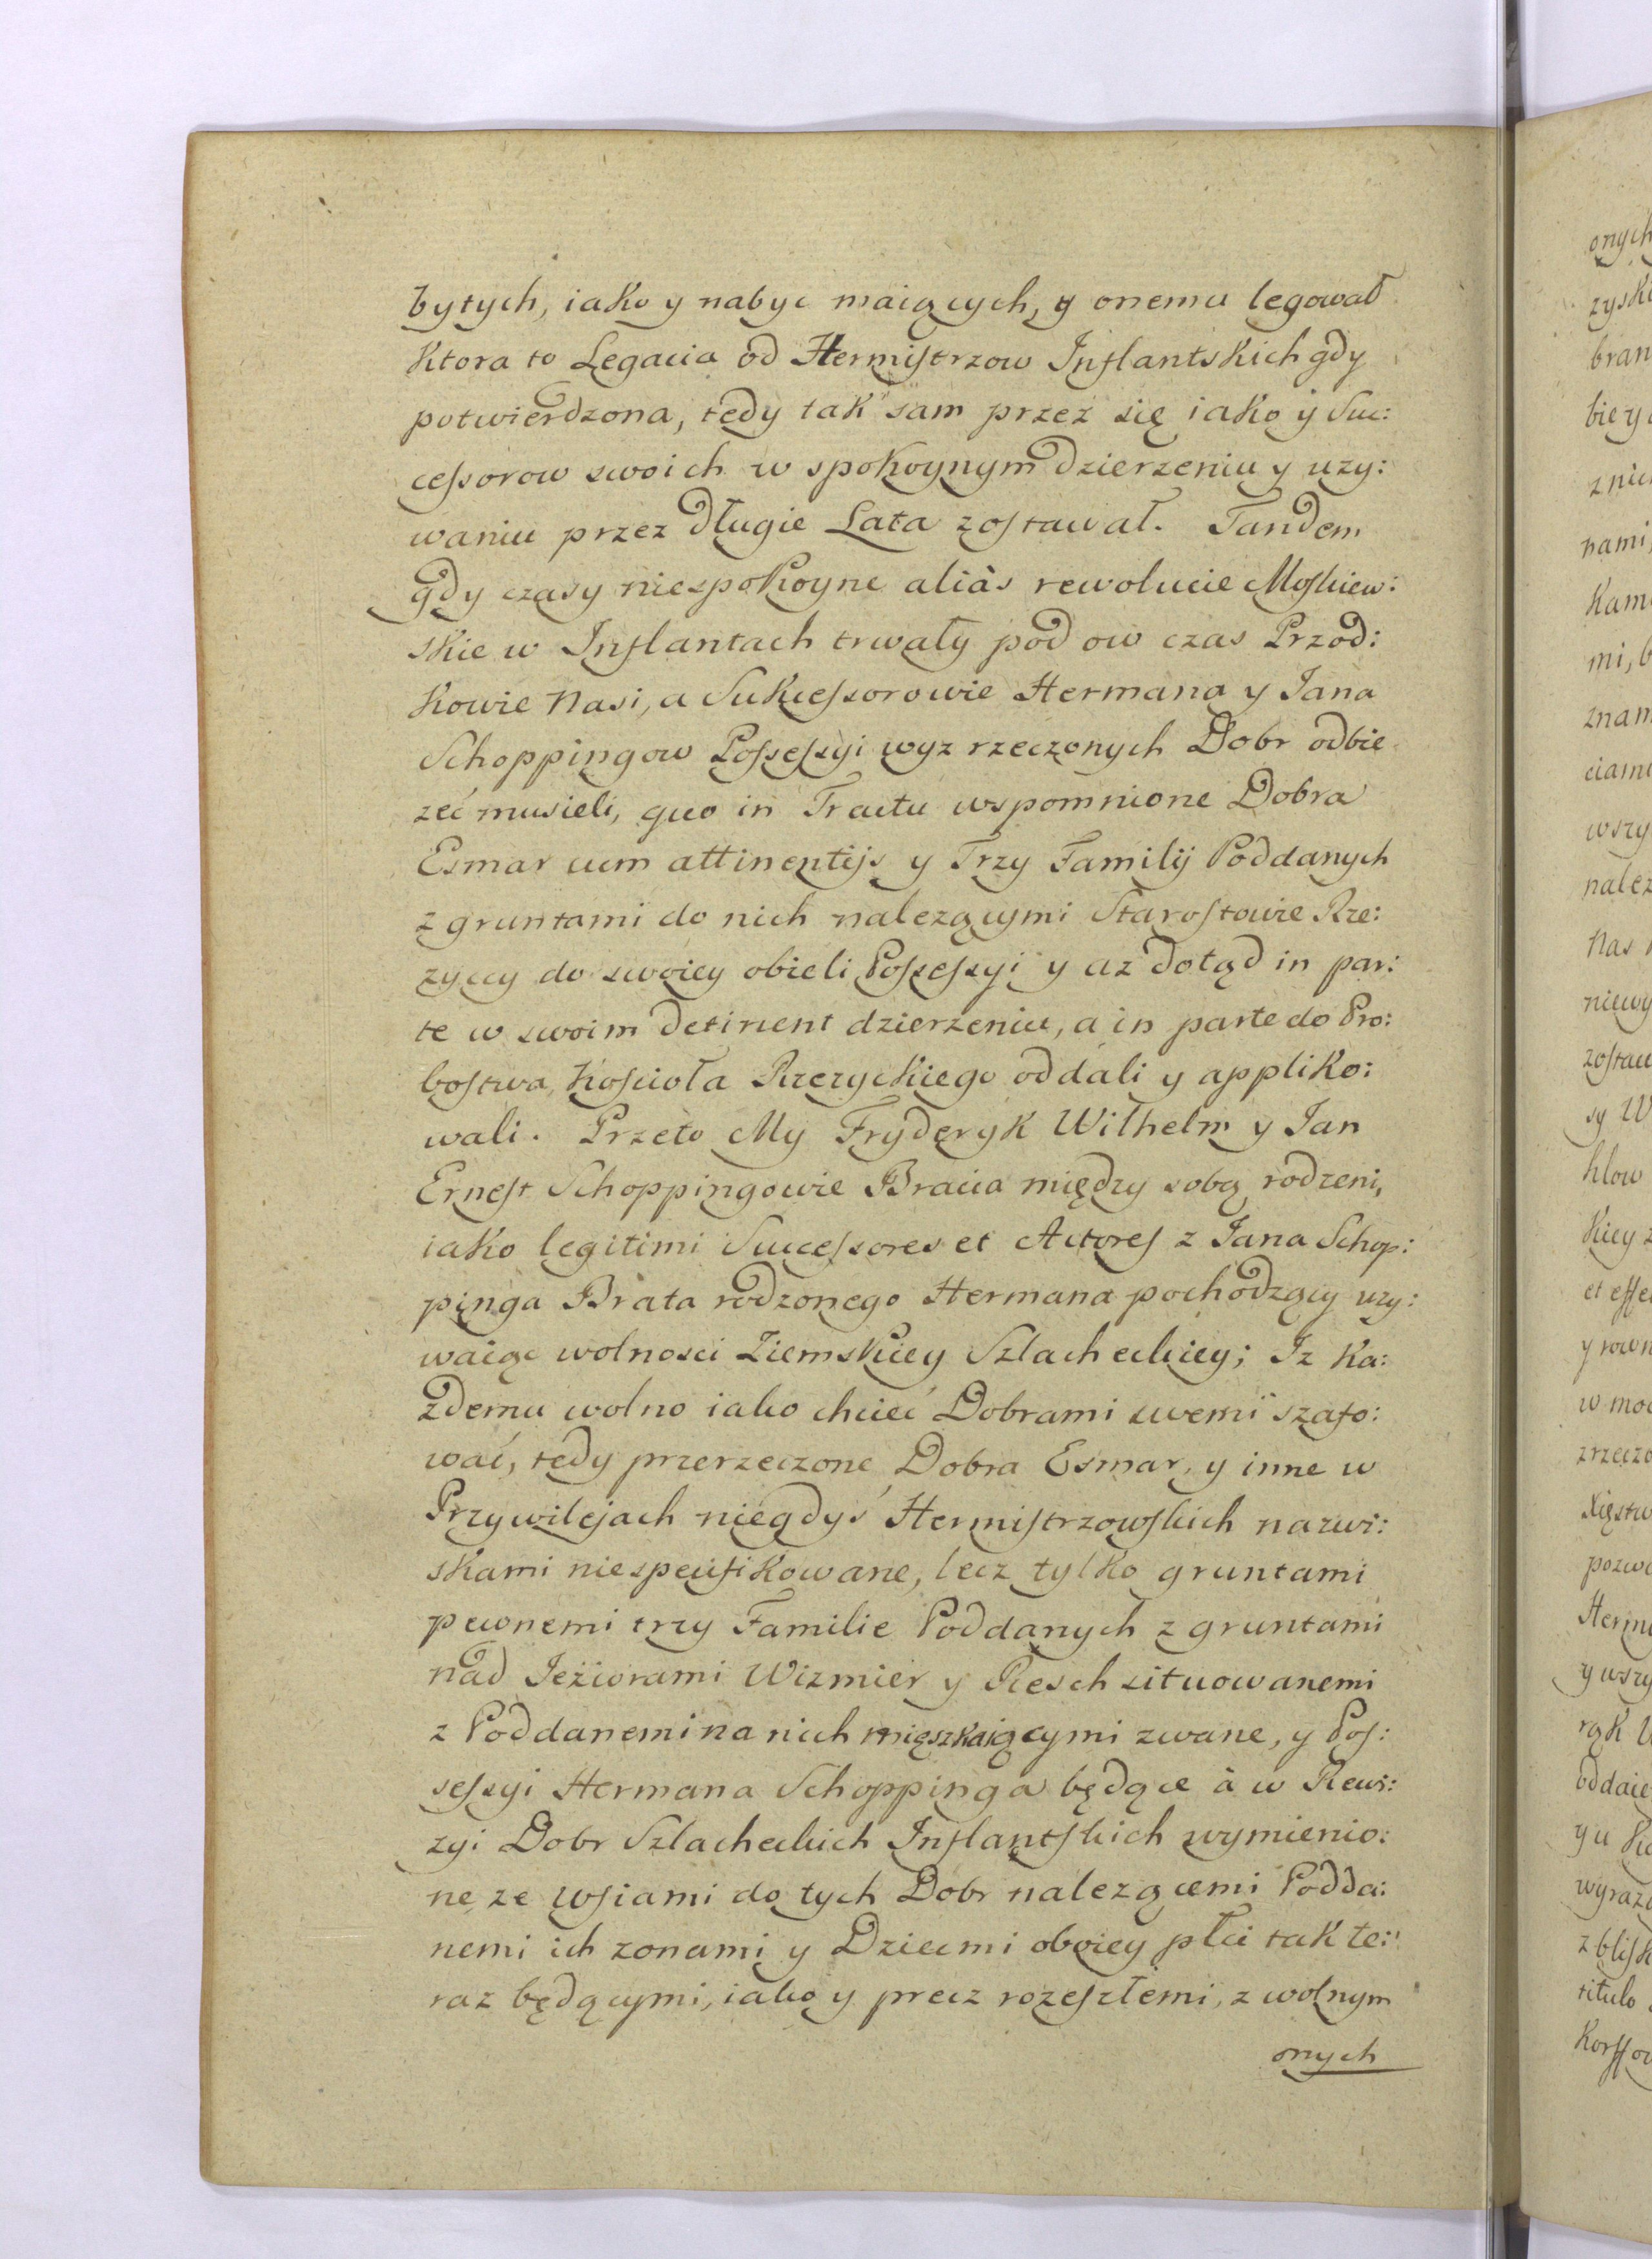 bytych, iako y nabyc maiących, y onemu legował
Ktora to Legacia od Hermistrzow Inflantskich gdy
potwierdzona, tedy tak sam przez się iako y Suc:
cessorow swoich w spokoynym dzierzeniu y uzy:
waniu przez długie Lata zostawał. Tandem
gdy czasy niespokoyne aliàs rewolucie Moskiew:
skie w Inflantach trwały pod ow czas Przod:
kowie Nasi, a Sukcessorowie Hermana y Jana
Schoppingow Possessyi wyz rzeczonych Dobr odbie
zeć musieli, quo in Tractu wspomnione Dobra
Esmar cum attinentijs y Trzy Familij Poddanych
z gruntami do nich nalezącymi Starostowie Rze:
zyccy do swoiey obieli Possessyi y az dotąd in par:
te w swoim detinent dzierzeniu, a in parte do Pro:
bostwa Kościoła Rzezyckiego oddali y appliko:
wali. Przeto My Fryderyk Wilhelm y Jan
Ernest Schoppingowie Bracia między sobą rodzeni,
iako legitimi Successores et Actores z Jana Schop:
pinga Brata rodzonego Hermana pochodzący uzy:
waiąc wolnosci Ziemskiey Szlacheckiey; Iz Ka:
zdemu wolno iako chcieć Dobrami swemi szafo:
wać, tedy przerzeczone Dobra Esmar, y inne w
Przywilejach niegdyś Hermistrzowskich nazwi:
skami niespecifikowane, lecz tylko gruntami
pewnemi trzy Familie Poddanych z gruntami
nad Jeziorami Wizmier y Resch situowanemi
z Poddanemi na nich mięszkaiącymi zwane, y Pos:
sessyi Hermana Schoppinga będące à w Rewi:
zyi Dobr Szlacheckich Inflantskich wymienio:
ne, ze wsiami do tych Dobr nalezącemi Podda:
nemi ich zonami y Dziecmi oboiey płci tak te:
raz będącymi, iako y precz rozeszłemi, z wolnym
onych